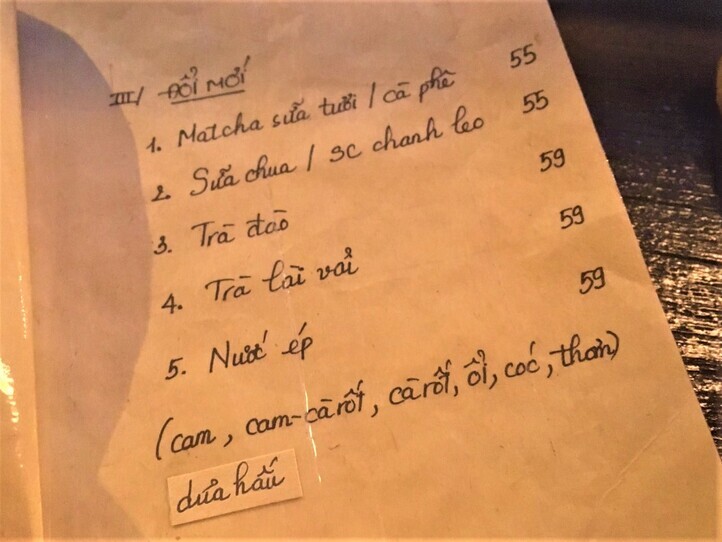 III/ ĐỔI MỚI
1. Matcha sữa tươi / cà phê 55
2. Sữa chua / sc chanh leo 55
3. Trà đào 59
4. Trà lài vải 59
5. Nước ép 59
(cam, cam-cà rốt, cà rốt, ổi, cóc, thơm)
dưa hấu